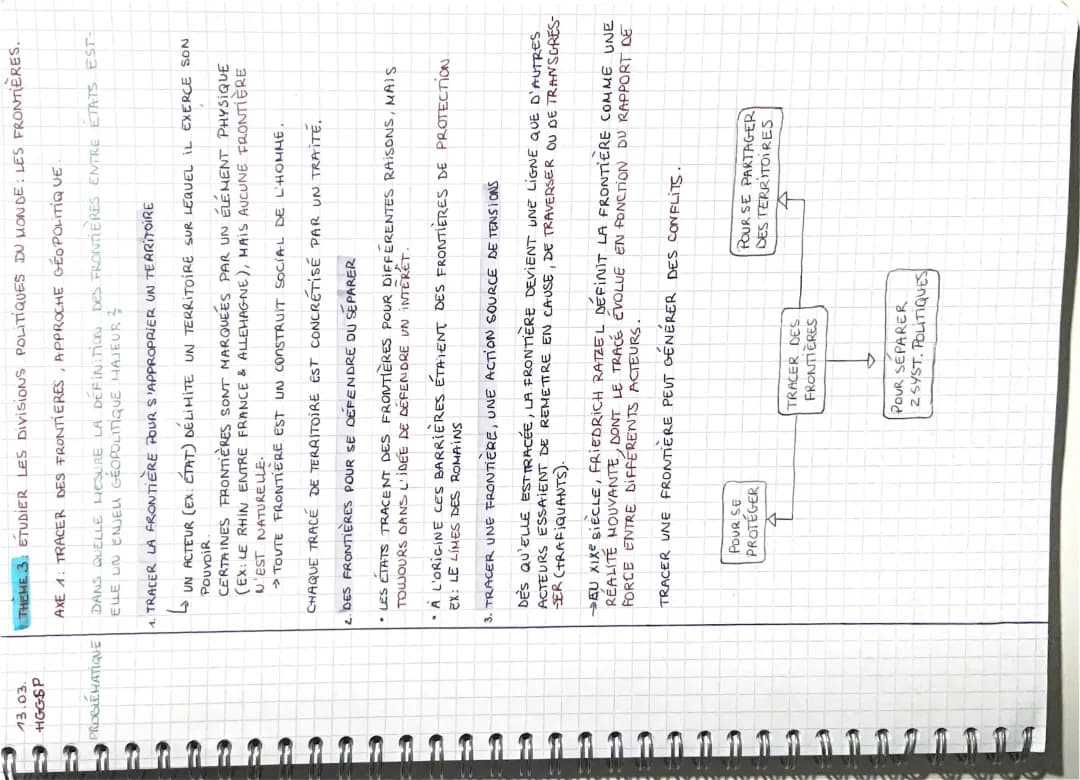 13.03.
HGGSP
THÈME 3: ÉTUDIER LES DIVISIONS POLITIQUES DU MONDE: LES FRONTIÈRES.
AXE 1: TRACER DES FRONTIÈRES, APPROCHE GÉOPOLITIQUE.
PROBLÉMATIQUE
DANS QUELLE MESURE LA DÉFINITION DES FRONTIÈRES ENTRE ÉTATS EST-
ELLE UN ENJEU GÉOPOLITIQUE MAJEUR ?
1. TRACER LA FRONTIÈRE POUR S'APPROPRIER UN TERRITOIRE
↳ UN ACTEUR (EX: ÉTAT) DÉLIMITE UN TERRITOIRE SUR LEQUEL IL EXERCE SON
POUVOIR.
CERTAINES FRONTIÈRES SONT MARQUÉES PAR UN ÉLÉMENT PHYSIQUE
(EX: LE RHIN ENTRE FRANCE & ALLEMAGNE), MAIS AUCUNE FRONTIÈRE
N'EST NATURELLE.
→ TOUTE FRONTIÈRE EST UN CONSTRUIT SOCIAL DE L'HOMME.
CHAQUE TRACÉ DE TERRITOIRE EST CONCRÉTISÉ PAR UN TRAITÉ.
2. DES FRONTIÈRES POUR SE DÉFENDRE OU SÉPARER
• LES ÉTATS TRACENT DES FRONTIÈRES POUR DIFFÉRENTES RAISONS, MAIS
TOUJOURS DANS L'IDÉE DE DÉFENDRE UN INTÉRÊT.
• À L'ORIGINE CES BARRIÈRES ÉTAIENT DES FRONTIÈRES DE PROTECTION
EX: LE LIMES DES ROMAINS
3. TRACER UNE FRONTIÈRE, UNE ACTION SOURCE DE TENSIONS
DÈS QU'ELLE EST TRACÉE, LA FRONTIÈRE DEVIENT UNE LIGNE QUE D'AUTRES
ACTEURS ESSAIENT DE REMETTRE EN CAUSE, DE TRAVERSER OU DE TRANSGRES-
SER (TRAFIQUANTS).
→ AU XIXe SIÈCLE, FRIEDRICH RATZEL DÉFINIT LA FRONTIÈRE COMME UNE
RÉALITÉ MOUVANTE, DONT LE TRACÉ ÉVOLUE EN FONCTION DU RAPPORT DE
FORCE ENTRE DIFFÉRENTS ACTEURS.
TRACER UNE FRONTIÈRE PEUT GÉNÉRER DES CONFLITS.
POUR SE
PROTÉGER
TRACER DES
FRONTIÈRES
POUR SE PARTAGER
DES TERRITOIRES
POUR SÉPARER
2 SYST. POLITIQUES